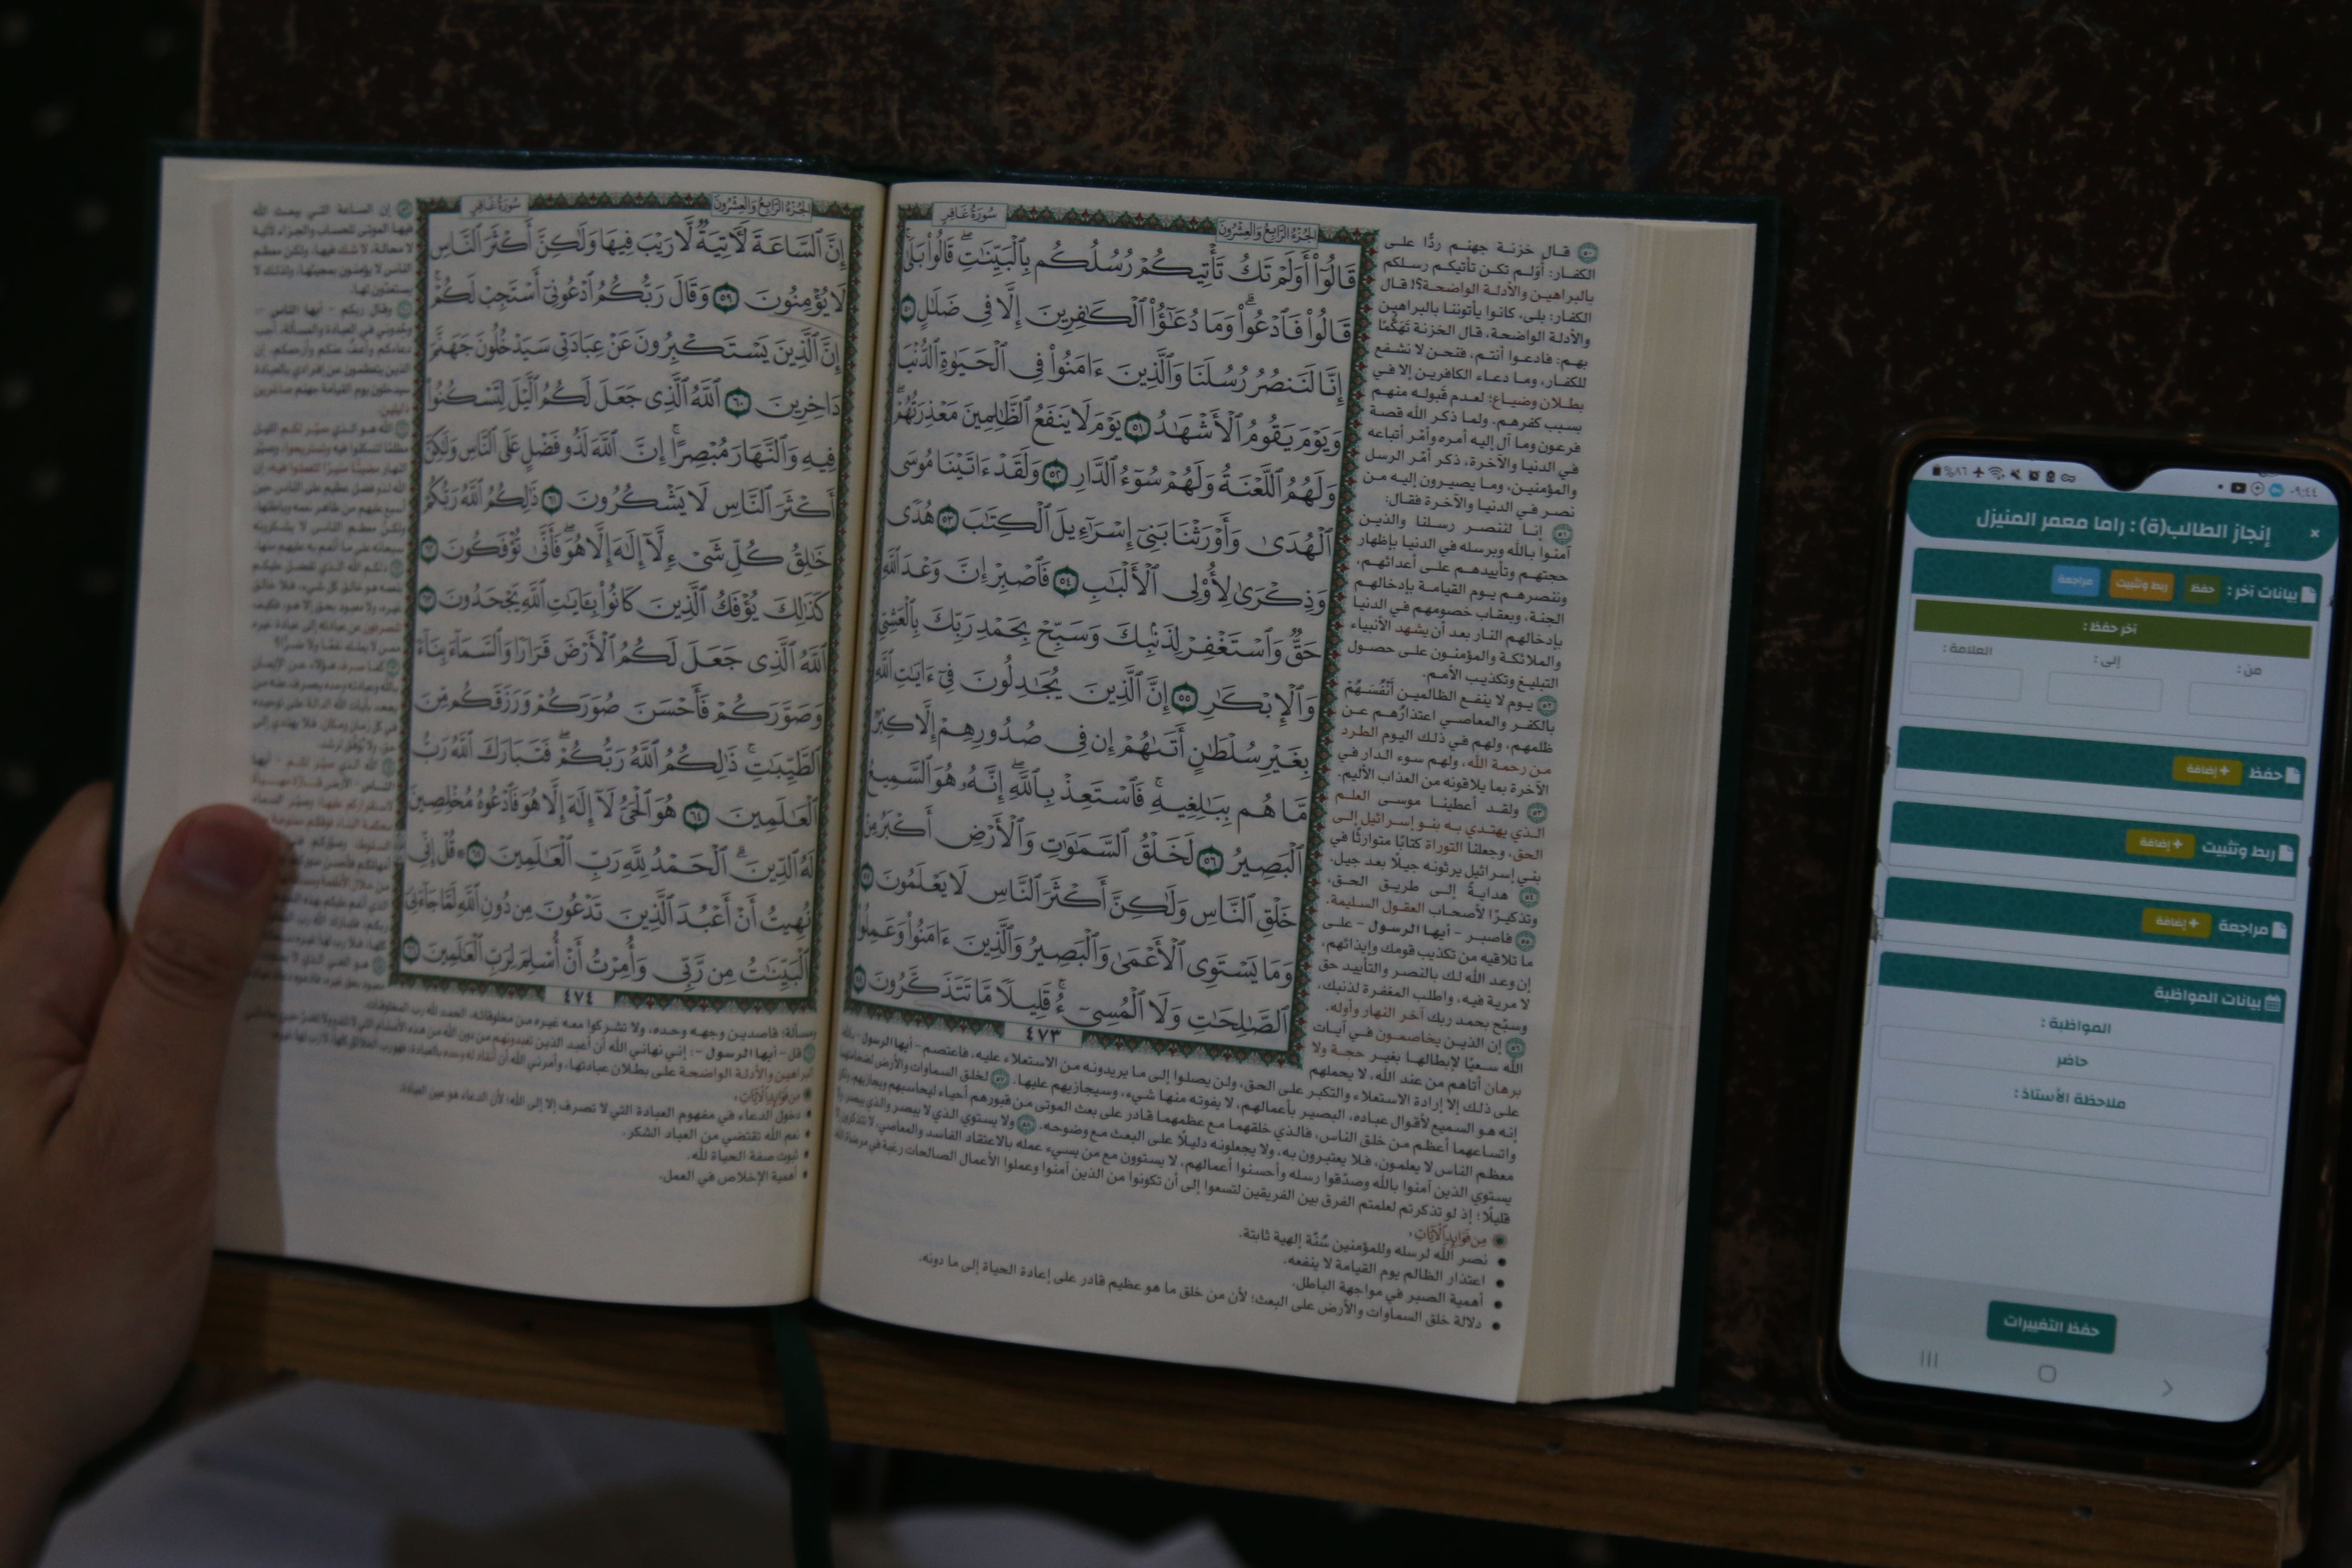 الجزء الرابع والعشرون
سورة غافر
قَالُوٓاْ أَوَلَمْ تَكُ تَأْتِيكُمْ رُسُلُكُم بِٱلْبَيِّنَٰتِۖ قَالُواْ بَلَىٰۚ
قَالُواْ فَٱدْعُواْۗ وَمَا دُعَٰٓؤُاْ ٱلْكَٰفِرِينَ إِلَّا فِي ضَلَٰلٍ ٥٠
إِنَّا لَنَنصُرُ رُسُلَنَا وَٱلَّذِينَ ءَامَنُواْ فِي ٱلْحَيَوٰةِ ٱلدُّنْيَا
وَيَوْمَ يَقُومُ ٱلْأَشْهَٰدُ ٥١ يَوْمَ لَا يَنفَعُ ٱلظَّٰلِمِينَ مَعْذِرَتُهُمْۖ
وَلَهُمُ ٱللَّعْنَةُ وَلَهُمْ سُوٓءُ ٱلدَّارِ ٥٢ وَلَقَدْ ءَاتَيْنَا مُوسَى
ٱلْهُدَىٰ وَأَوْرَثْنَا بَنِيٓ إِسْرَٰٓءِيلَ ٱلْكِتَٰبَ ٥٣ هُدًى
وَذِكْرَىٰ لِأُوْلِي ٱلْأَلْبَٰبِ ٥٤ فَٱصْبِرْ إِنَّ وَعْدَ ٱللَّهِ
حَقٌّ وَٱسْتَغْفِرْ لِذَنۢبِكَ وَسَبِّحْ بِحَمْدِ رَبِّكَ بِٱلْعَشِيِّ
وَٱلْإِبْكَٰرِ ٥٥ إِنَّ ٱلَّذِينَ يُجَٰدِلُونَ فِيٓ ءَايَٰتِ ٱللَّهِ
بِغَيْرِ سُلْطَٰنٍ أَتَىٰهُمْ إِن فِي صُدُورِهِمْ إِلَّا كِبْرٌ
مَّا هُم بِبَٰلِغِيهِۚ فَٱسْتَعِذْ بِٱللَّهِۖ إِنَّهُۥ هُوَ ٱلسَّمِيعُ
ٱلْبَصِيرُ ٥٦ لَخَلْقُ ٱلسَّمَٰوَٰتِ وَٱلْأَرْضِ أَكْبَرُ مِنْ
خَلْقِ ٱلنَّاسِ وَلَٰكِنَّ أَكْثَرَ ٱلنَّاسِ لَا يَعْلَمُونَ ٥٧
وَمَا يَسْتَوِي ٱلْأَعْمَىٰ وَٱلْبَصِيرُ وَٱلَّذِينَ ءَامَنُواْ وَعَمِلُواْ
ٱلصَّٰلِحَٰتِ وَلَا ٱلْمُسِيٓءُۚ قَلِيلًا مَّا تَتَذَكَّرُونَ ٥٨
٤٧٣
٥٠ قال خزنة جهنم ردًّا على
الكفار: أولم تكن تأتيكم رسلكم
بالبراهين والأدلة الواضحة؟! قال
الكفار: بلى، كانوا يأتوننا بالبراهين
والأدلة الواضحة، قال الخزنة تَهَكُّمًا
بهم: فادعوا أنتم، فنحن لا نشفع
للكفار، وما دعاء الكافرين إلا في
بطلان وضياع؛ لعدم قبوله منهم
بسبب كفرهم. ولما ذكر الله قصة
فرعون وما آل إليه أمره وأمْر أتباعه
في الدنيا والآخرة، ذكر أمْر الرسل
والمؤمنين، وما يصيرون إليه من
نصر في الدنيا والآخرة فقال:
٥١ إنا لننصر رسلنا والذين
آمنوا بالله وبرسله في الدنيا بإظهار
حجتهم وتأييدهم على أعدائهم،
وننصرهم يوم القيامة بإدخالهم
الجنة، وبعقاب خصومهم في الدنيا
بإدخالهم النار بعد أن يشهد الأنبياء
والملائكة والمؤمنون على حصول
التبليغ وتكذيب الأمم.
٥٢ يوم لا ينفع الظالمين أَنْفُسَهُمْ
بالكفر والمعاصي اعتذارُهم عن
ظلمهم، ولهم في ذلك اليوم الطرد
من رحمة الله، ولهم سوء الدار في
الآخرة بما يلاقونه من العذاب الأليم.
٥٣ ولقد أعطينا موسى العلم
الذي يهتدي به بنو إسرائيل إلى
الحق، وجعلنا التوراة كتابًا متوارثًا في
بني إسرائيل يرثونه جيلًا بعد جيل.
٥٤ هداية إلى طريق الحق،
وتذكيرًا لأصحاب العقول السليمة.
٥٥ فاصبر - أيها الرسول - على
ما تلاقيه من تكذيب قومك وإيذائهم،
إن وعد الله لك بالنصر والتأييد حق
لا مرية فيه، واطلب المغفرة لذنبك،
وسبّح بحمد ربك آخر النهار وأوله.
٥٦ إن الذين يخاصمون في آيات
الله سعيًا لإبطالها بغير حجة ولا
برهان أتاهم من عند الله، لا يحملهم
على ذلك إلا إرادة الاستعلاء والتكبر على الحق، ولن يصلوا إلى ما يريدونه من الاستعلاء عليه، فاعتصم - أيها الرسول - بالله
إنه هو السميع لأقوال عباده، البصير بأعمالهم، لا يفوته منها شيء، وسيجازيهم عليها. ٥٧ لخلق السماوات والأرض لضخامتهما
واتساعهما أعظم من خلق الناس، فالذي خلقهما مع عظمهما قادر على بعث الموتى من قبورهم أحياء ليحاسبهم ويجازيهم، ولكن
معظم الناس لا يعلمون، فلا يعتبرون به، ولا يجعلونه دليلًا على البعث مع وضوحه. ٥٨ ولا يستوي الذي لا يبصر والذي يبصر، ولا
يستوي الذين آمنوا بالله وصدّقوا رسله وأحسنوا أعمالهم، لا يستوون مع من يسيء عمله بالاعتقاد الفاسد والمعاصي، لا تتذكرون إلا
قليلًا؛ إذ لو تذكرتم لعلمتم الفرق بين الفريقين لتسعوا إلى أن تكونوا من الذين آمنوا وعملوا الأعمال الصالحات رغبة في مرضاة الله
من فوائد الآيات:
• نصر الله لرسله وللمؤمنين سُنَّة إلهية ثابتة.
• اعتذار الظالم يوم القيامة لا ينفعه.
• أهمية الصبر في مواجهة الباطل.
• دلالة خلق السماوات والأرض على البعث؛ لأن من خلق ما هو عظيم قادر على إعادة الحياة إلى ما دونه.
الجزء الرابع والعشرون
سورة غافر
إِنَّ ٱلسَّاعَةَ لَأٓتِيَةٌ لَّا رَيْبَ فِيهَا وَلَٰكِنَّ أَكْثَرَ ٱلنَّاسِ
لَا يُؤْمِنُونَ ٥٩ وَقَالَ رَبُّكُمُ ٱدْعُونِيٓ أَسْتَجِبْ لَكُمْۚ
إِنَّ ٱلَّذِينَ يَسْتَكْبِرُونَ عَنْ عِبَادَتِي سَيَدْخُلُونَ جَهَنَّمَ
دَاخِرِينَ ٦٠ ٱللَّهُ ٱلَّذِي جَعَلَ لَكُمُ ٱلَّيْلَ لِتَسْكُنُواْ
فِيهِ وَٱلنَّهَارَ مُبْصِرًاۚ إِنَّ ٱللَّهَ لَذُو فَضْلٍ عَلَى ٱلنَّاسِ وَلَٰكِنَّ
أَكْثَرَ ٱلنَّاسِ لَا يَشْكُرُونَ ٦١ ذَٰلِكُمُ ٱللَّهُ رَبُّكُمْ
خَٰلِقُ كُلِّ شَيْءٍ لَّآ إِلَٰهَ إِلَّا هُوَۖ فَأَنَّىٰ تُؤْفَكُونَ ٦٢
كَذَٰلِكَ يُؤْفَكُ ٱلَّذِينَ كَانُواْ بِـَٔايَٰتِ ٱللَّهِ يَجْحَدُونَ ٦٣
ٱللَّهُ ٱلَّذِي جَعَلَ لَكُمُ ٱلْأَرْضَ قَرَارًا وَٱلسَّمَآءَ بِنَآءً
وَصَوَّرَكُمْ فَأَحْسَنَ صُوَرَكُمْ وَرَزَقَكُم مِّنَ
ٱلطَّيِّبَٰتِۚ ذَٰلِكُمُ ٱللَّهُ رَبُّكُمْۖ فَتَبَارَكَ ٱللَّهُ رَبُّ
ٱلْعَٰلَمِينَ ٦٤ هُوَ ٱلْحَيُّ لَآ إِلَٰهَ إِلَّا هُوَ فَٱدْعُوهُ مُخْلِصِينَ
لَهُ ٱلدِّينَۗ ٱلْحَمْدُ لِلَّهِ رَبِّ ٱلْعَٰلَمِينَ ٦٥ ۞ قُلْ إِنِّي
نُهِيتُ أَنْ أَعْبُدَ ٱلَّذِينَ تَدْعُونَ مِن دُونِ ٱللَّهِ لَمَّا جَآءَنِيَ
ٱلْبَيِّنَٰتُ مِن رَّبِّي وَأُمِرْتُ أَنْ أُسْلِمَ لِرَبِّ ٱلْعَٰلَمِينَ ٦٦
٤٧٤
٥٩ إن الساعة التي يبعث الله
فيها الموتى للحساب والجزاء لآتية
لا محالة، لا شك فيها، ولكن معظم
الناس لا يؤمنون بمجيئها، ولذلك لا
يستعدّون لها.
٦٠ وقال ربكم - أيها الناس -
وحّدوني في العبادة والمسألة، أجب
دعاءكم وأعف عنكم وأرحمكم، إن
الذين يتعظمون عن إفرادي بالعبادة
سيدخلون يوم القيامة جهنم صاغرين
ذليلين.
٦١ الله هو الذي صيّر لكم الليل
مظلمًا لتسكنوا فيه وتستريحوا، وصيّر
النهار مضيئًا منيرًا لتعملوا فيه، إن
الله لذو فضل عظيم على الناس حين
أسبغ عليهم من ظاهر نعمه وباطنها،
ولكنّ معظم الناس لا يشكرونه
مسألة؛ قاصدين وجهه وحده، ولا تشركوا معه غيره من مخلوقاته، الحمد لله رب المخلوقات.
٦٦ قل - أيها الرسول -: إني نهاني الله أن أعبد الذين تعبدونهم من دون الله من هذه الأصنام التي لا تنفع ولا تضر
البراهين والأدلة الواضحة على بطلان عبادتها، وأمرني الله أن أنقاد له وحده بالعبادة، فهو رب الخلائق كلها، لا رب لها غيره.
من فوائد الآيات:
• دخول الدعاء في مفهوم العبادة التي لا تصرف إلا إلى الله؛ لأن الدعاء هو عين العبادة.
• نعم الله تقتضي من العباد الشكر.
• ثبوت صفة الحياة لله.
• أهمية الإخلاص في العمل.
٩:٤٤
٨٦%
إنجاز الطالب(ة) : راما معمر المنيزل
×
بيانات آخر : حفظ ربط وتثبيت مراجعة
آخر حفظ :
من : إلى : العلامة :
حفظ + إضافة
ربط وتثبيت + إضافة
مراجعة + إضافة
بيانات المواظبة
المواظبة :
حاضر
ملاحظة الأستاذ :
حفظ التغييرات